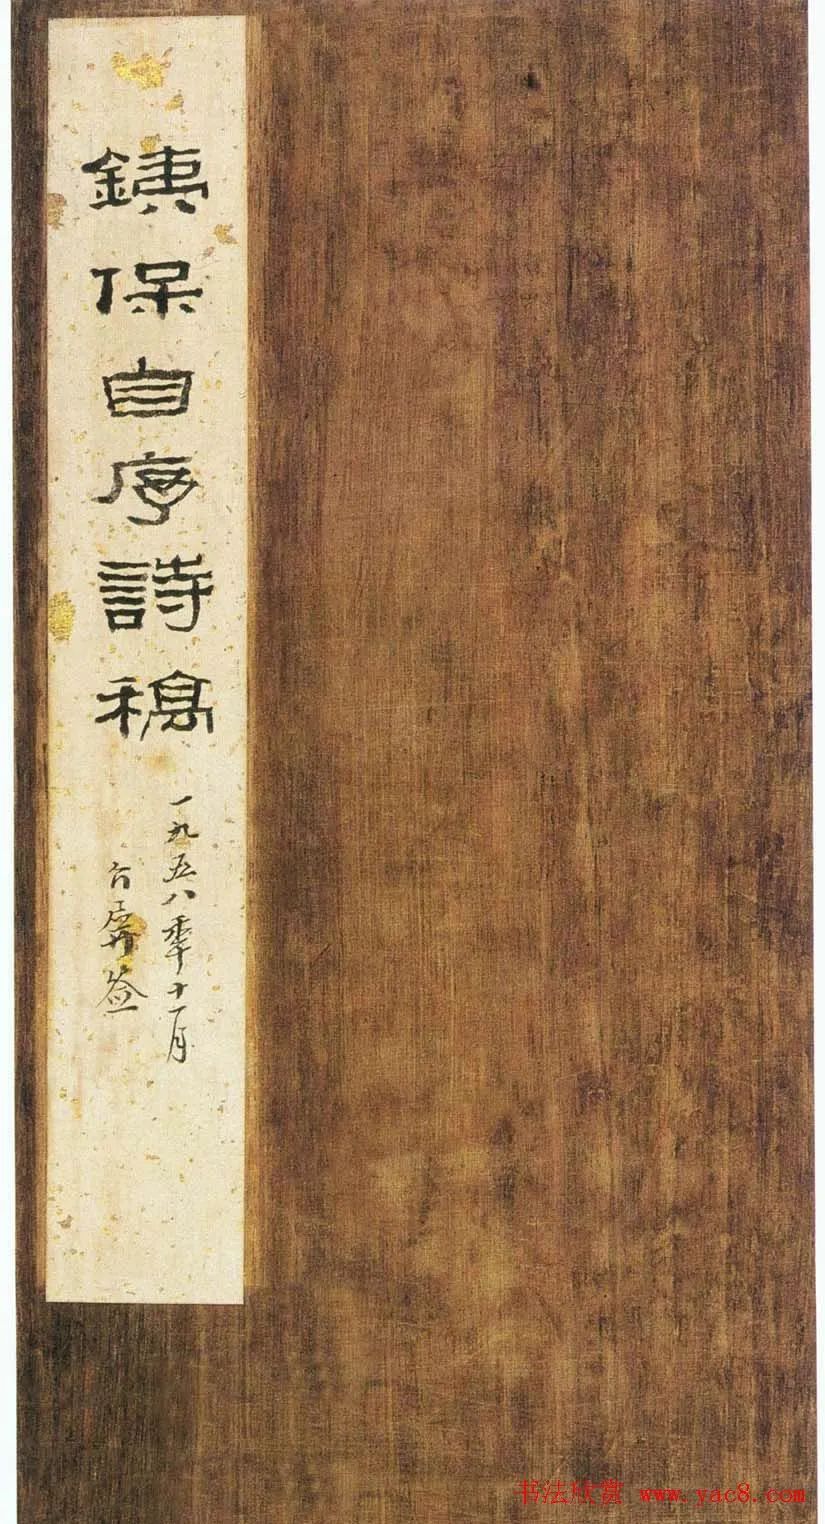 銕保自序詩稿
一九五八秊十一月
签
书法欣赏 www.yac8.com